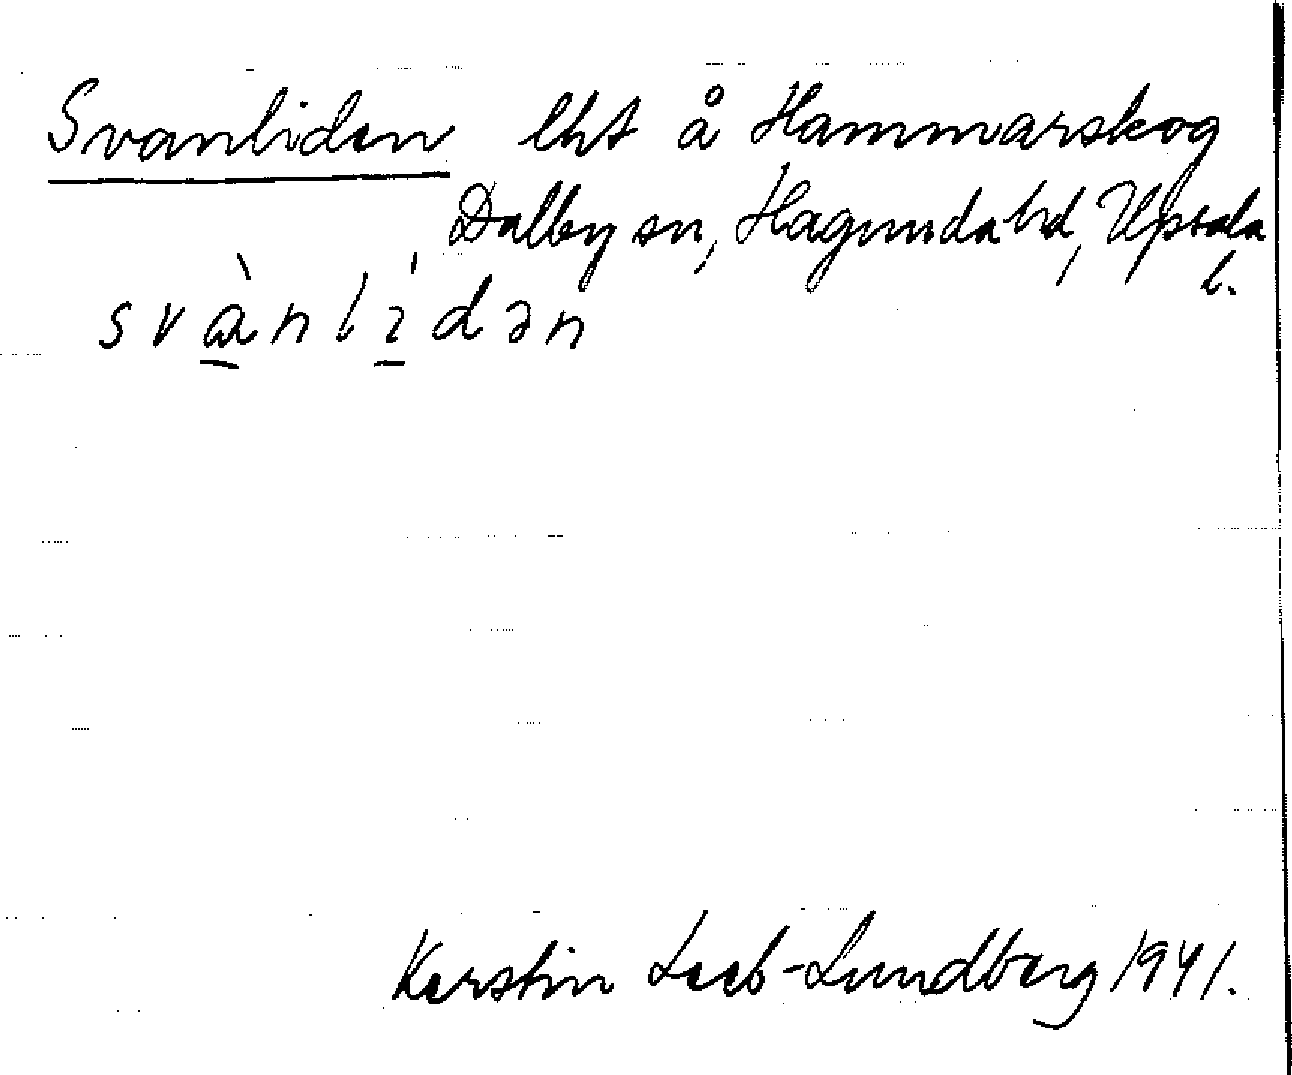 Svanliden lht å Hammarskog
Dalby sn, Hagunda hd, Upsala
l.
svànlídən
Kerstin Leeb-Lundberg 1941.